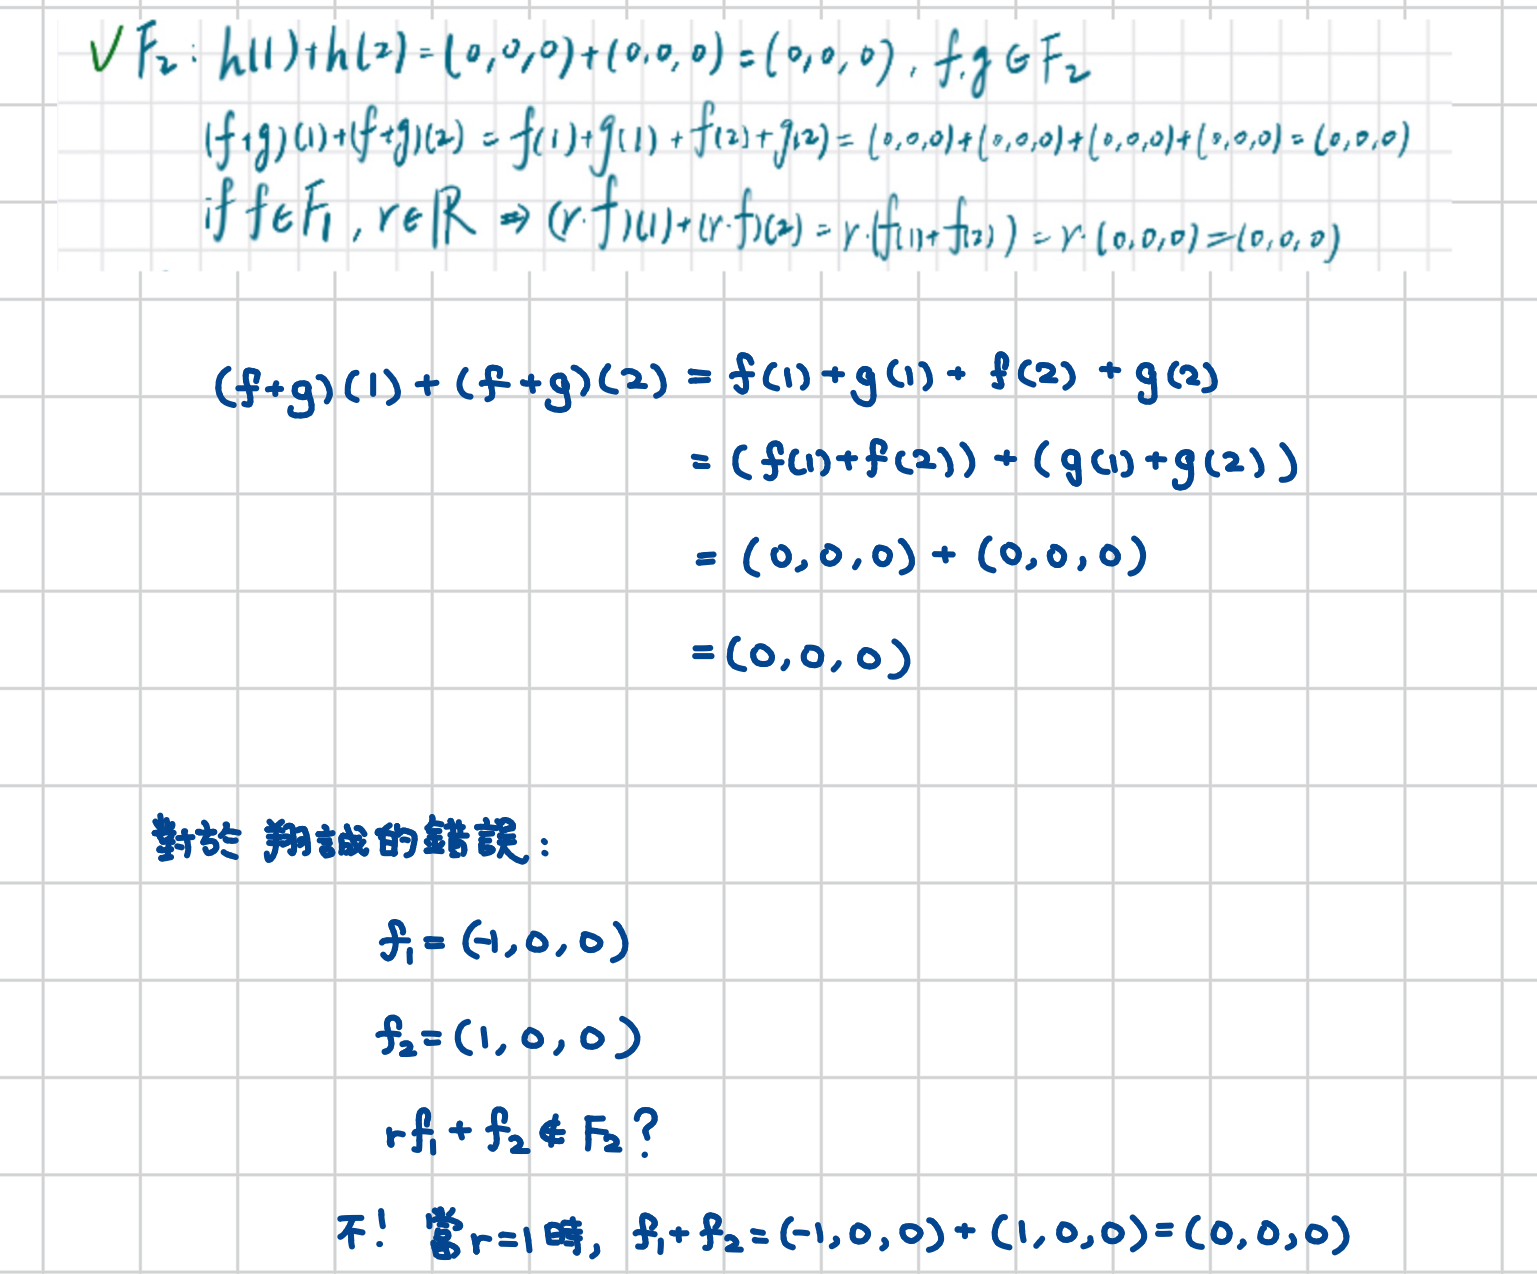 ✓ F₂: h(1)+h(2)=(0,0,0)+(0,0,0)=(0,0,0), f,g∈F₂
(f+g)(1)+(f+g)(2)=f(1)+g(1)+f(2)+g(2)=(0,0,0)+(0,0,0)+(0,0,0)+(0,0,0)=(0,0,0)
if f∈F₁, r∈ℝ ⇒ (r·f)(1)+(r·f)(2)=r·(f(1)+f(2))=r·(0,0,0)=(0,0,0)
(f+g)(1)+(f+g)(2)=f(1)+g(1)+f(2)+g(2)
=(f(1)+f(2))+(g(1)+g(2))
=(0,0,0)+(0,0,0)
=(0,0,0)
對於 翔誠的錯誤:
f₁=(-1,0,0)
f₂=(1,0,0)
rf₁+f₂∉F₂?
不! 當r=1時, f₁+f₂=(-1,0,0)+(1,0,0)=(0,0,0)